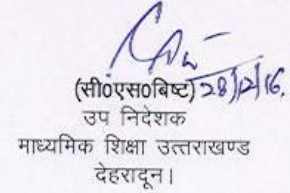 (सी0एस0बिष्ट) 28/12/16.
उप निदेशक
माध्यमिक शिक्षा उत्तराखण्ड
देहरादून।